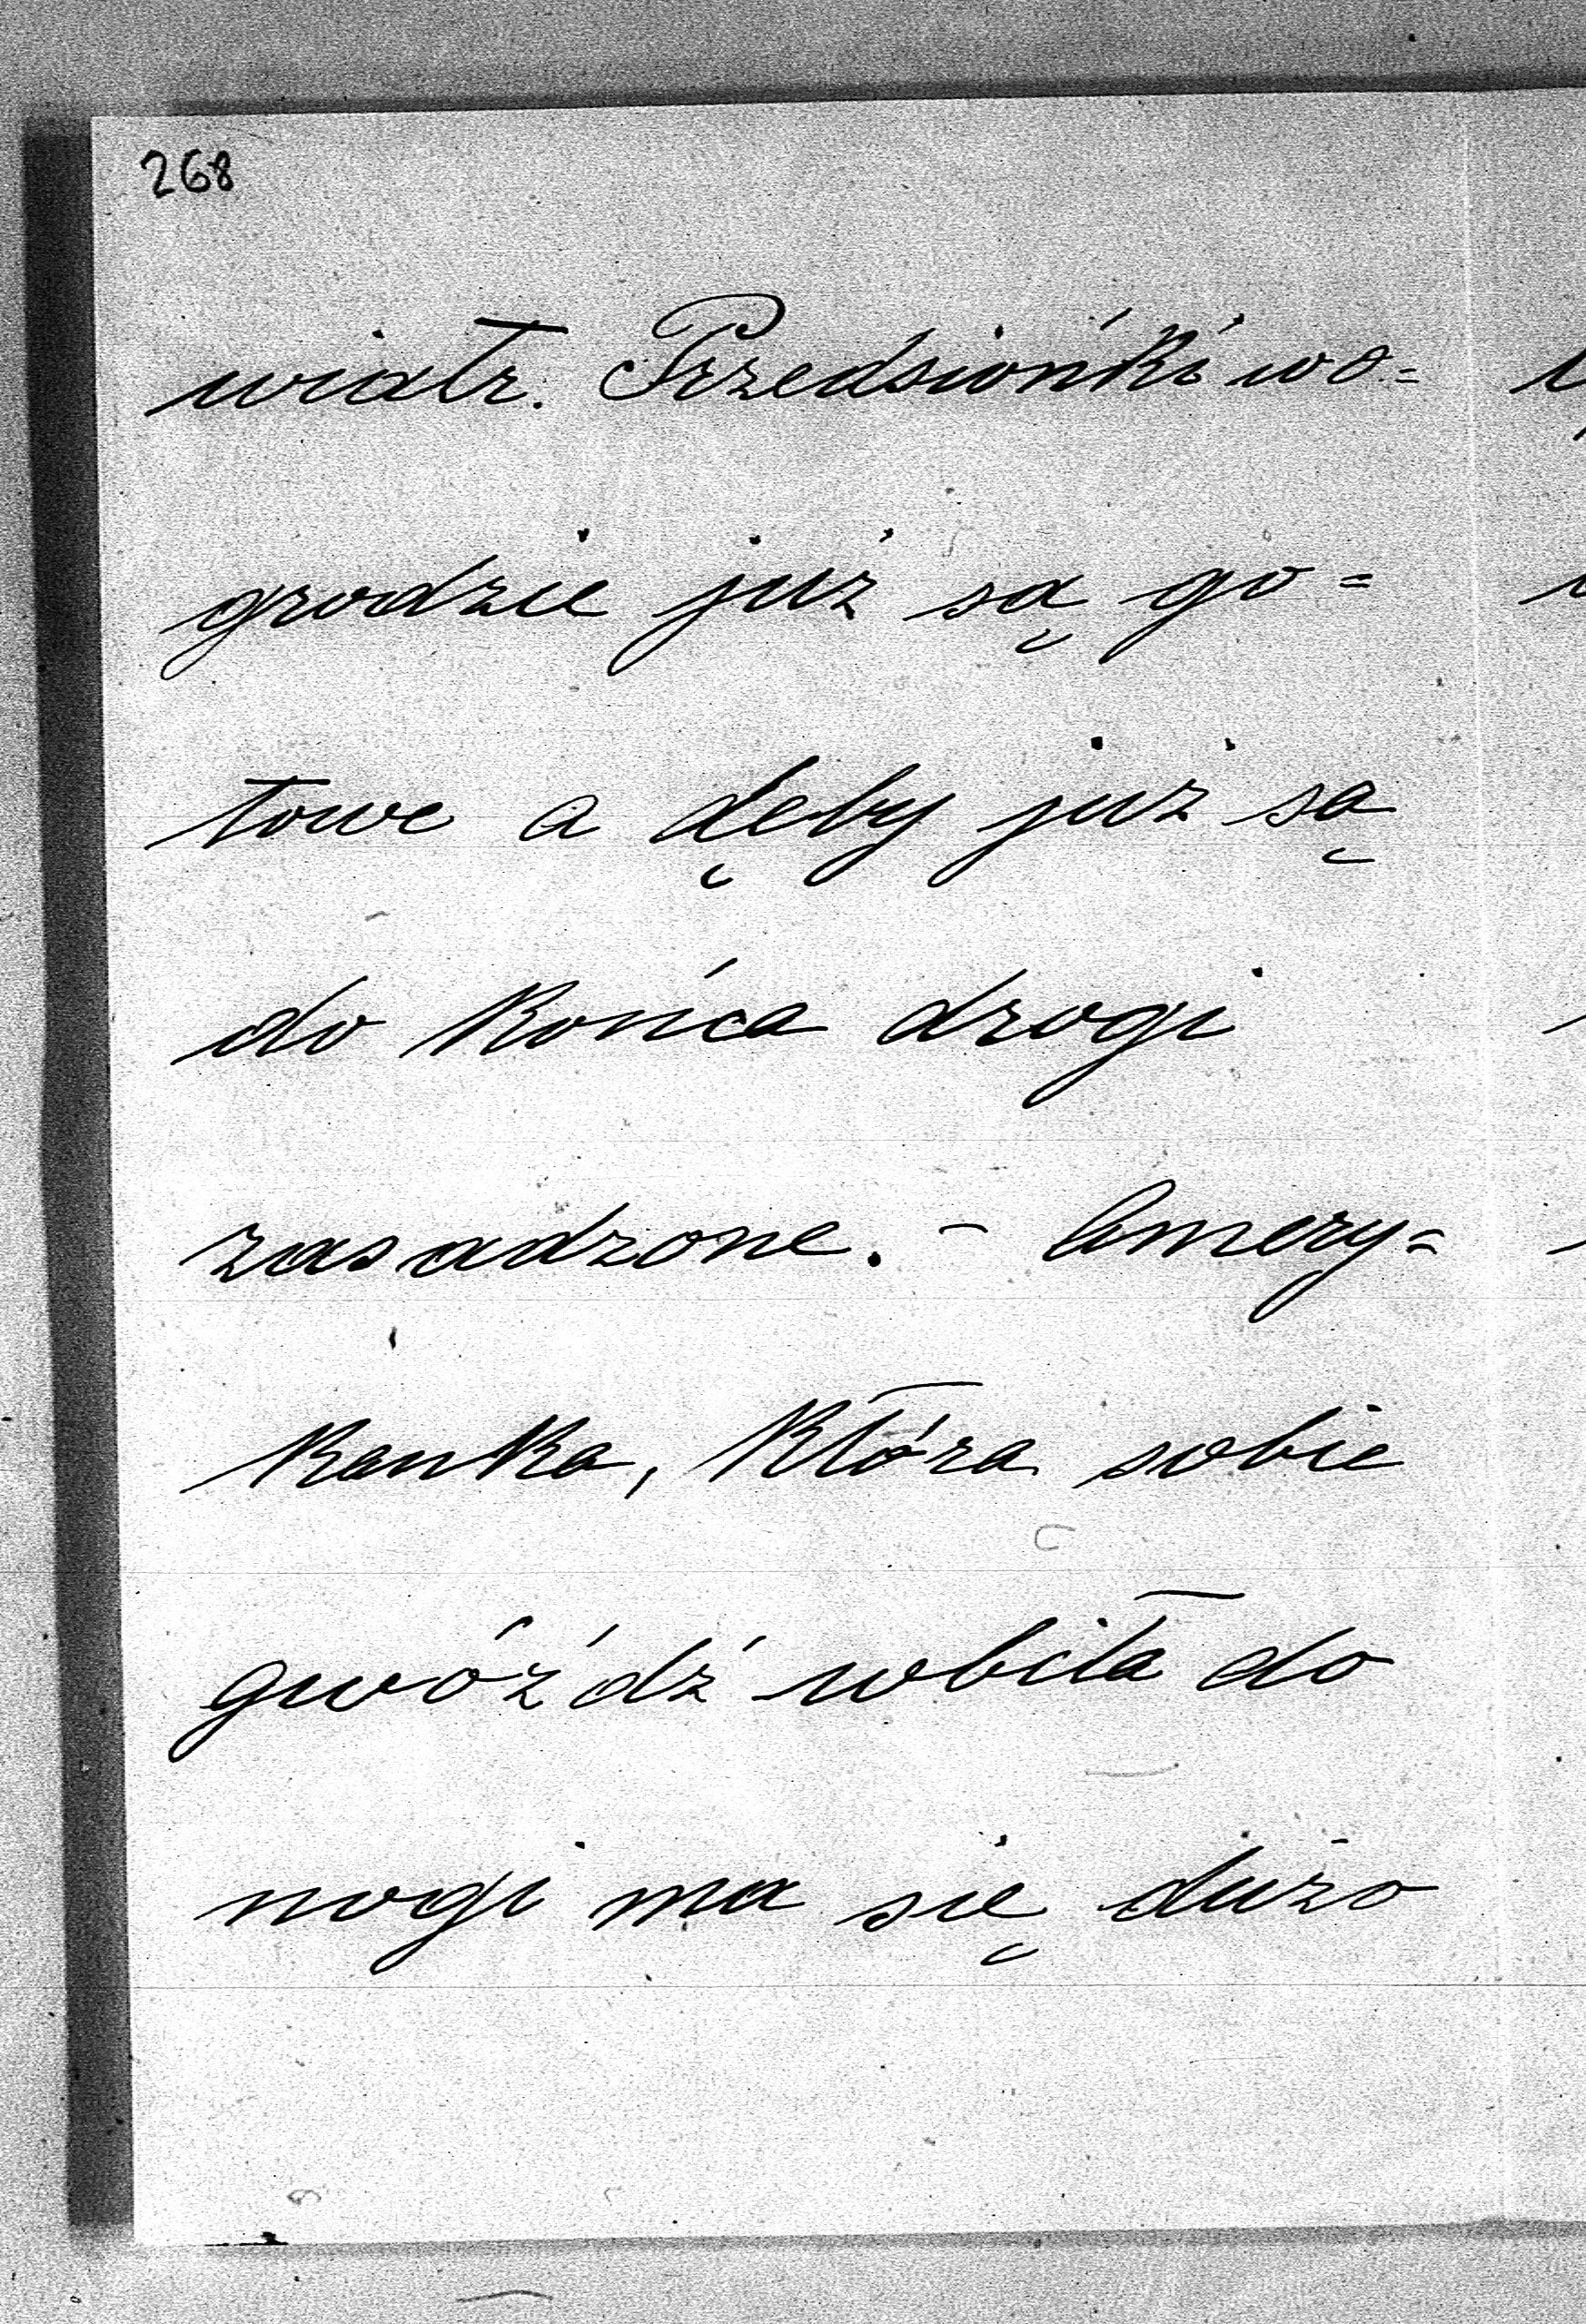 268
wiatr. Przedsionki wo=
grodzie już są go=
towe a dęby już są
do końca drogi
zasadzone. - Amery=
kanka, która sobie
gwóźdź wbiła do
nogi ma się dużo